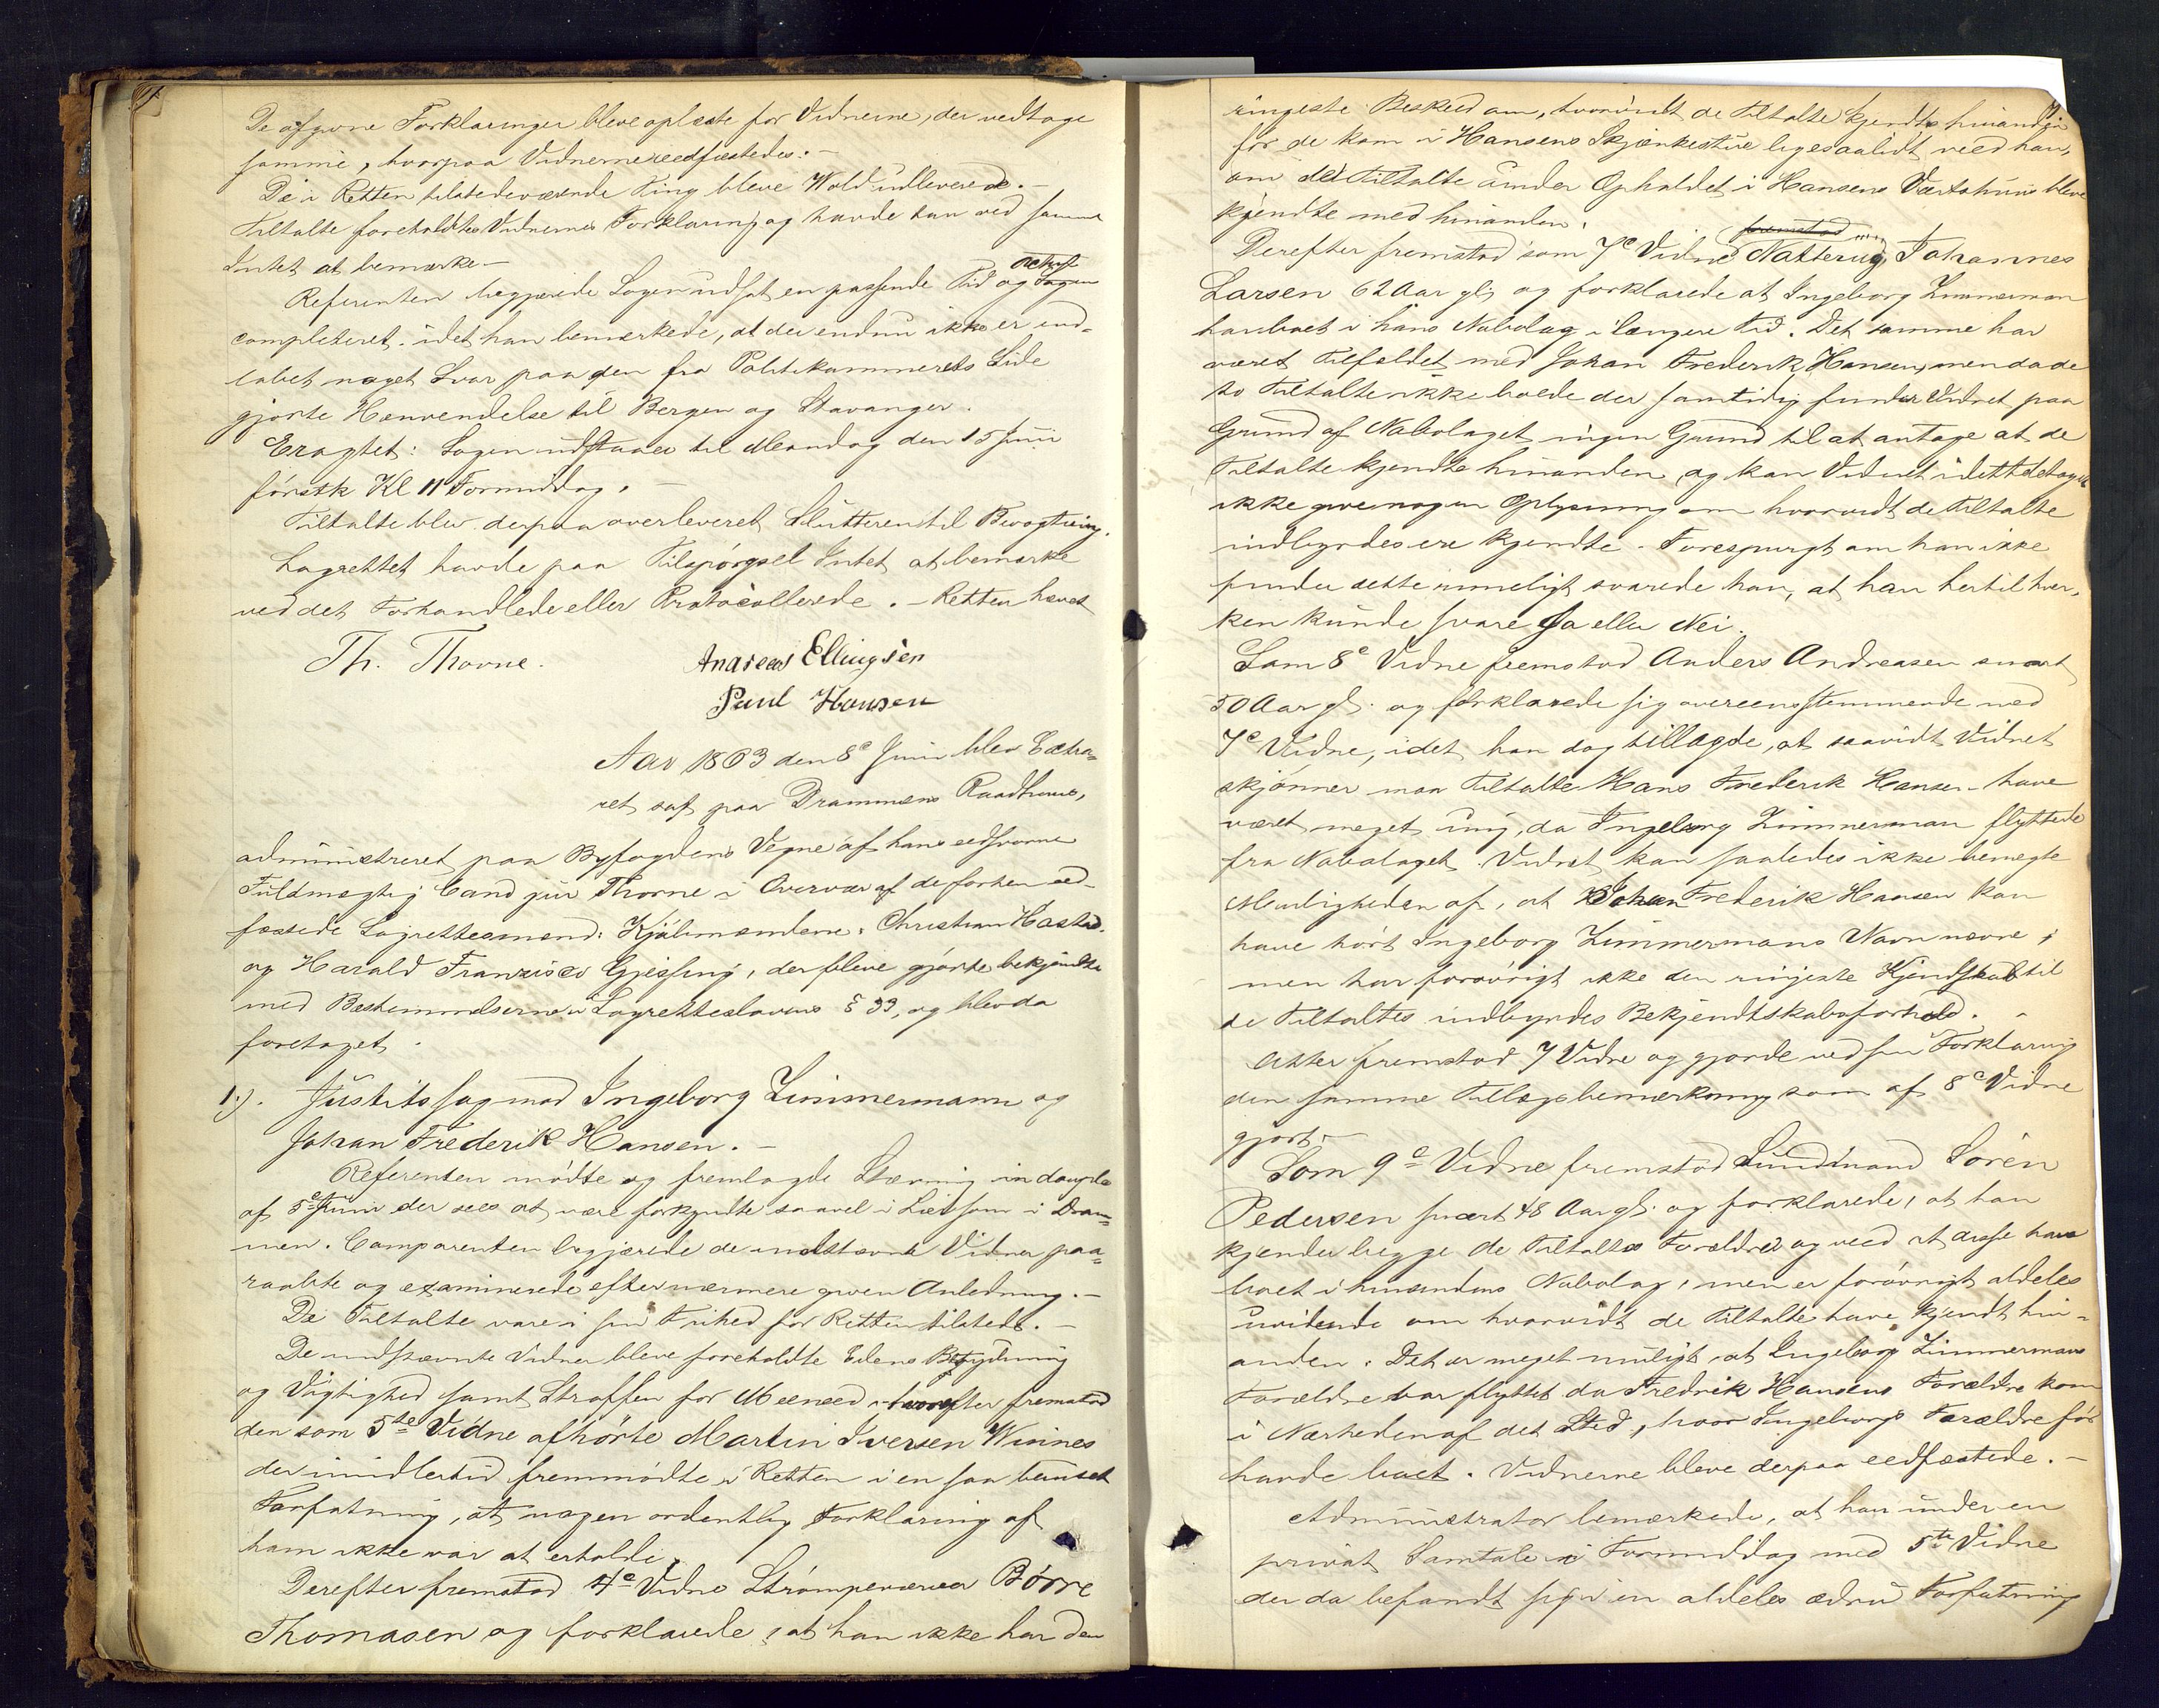 De afgivne Forklaringer bleve oplæste for Vidnerne, der vedtage
samme, hvorpaa Vidnerne eedfæstedes. –
De i Retten tilstedeværende Ting bleve Wold udleverede. –
Tiltalte foreholdtes Vidnernes Forklaring og havde han ved samme
Intet at bemærke –
Referenten begjærede Sagen udsat en passende Tid og Sagen
completeret. idet han bemærkede, at der endnu ikke er ind-
løbet noget Svar paa den fra Politikammerets Side
gjorte Henvendelse til Bergen og Stavanger.
Eragtet: Sagen udstaaer til Mandag den 15 Juni
førstk Kl 11 Formiddag. –
Tiltalte blev derpaa overleveret Slutteren til Bevogtning.
Lagrettet havde paa Tilspørgsel Intet at bemærke
ved det Forhandlede eller Protocollerede. – Retten hævet
Th. Thorne. Andreas Ellingsen
Paul Hansen
Aar 1863 den 8e Juni blev Extra-
ret sat paa Drammens Raadhuus,
administreret paa Byfogdens Vegne af hans eedsvorne
Fuldmægtig Cand jur Thorne i Overvær af de forhen eed-
fæstede Lagrettesmænd: Kjøbmændene: Christian Hasted
og Harald Franzisco Gjessing, der bleve gjorte bekjendte
med Bestemmelserne i Lagretteslovens § 33, og blev da
foretaget.
1). Justitssag mod Ingeborg Zimmermann og
Johan Frederik Hansen. –
Referenten mødte og fremlagde Stævning in duplo
af 5e Juni der sees at være forkyndte saavel i Lier som i Dram-
men. Comparenten begjærede de indstævnte Vidner paa-
raabte og examinerede efter nærmere given Anledning. –
De Tiltalte vare i sin Frihed for Retten tilstede. –
De indstævnte Vidner bleve foreholdte Edens Betydning
og Vigtighed samt Straffen for Meeneed, hvorefter fremstod
den som 5te Vidne afhørte Martin Iversen Winnes
der imidlertid fremmødte i Retten i en saa beruset
Forfatning, at nogen ordentlig Forklaring af
ham ikke var at erholde.
Derefter fremstod 4e Vidne Strømpevæver Børre
Thomasen og forklarede, at han ikke har den
ringeste Beskeed om, hvorvidt de Tiltalte kjendte hinanden
før de kom i Hansens Skjænkestue ligesaalidt veed han,
om de Tiltalte under Opholdet i Hansens Værtshuus bleve
kjendte med hinanden.
Derefter fremstod som 7e Vidne Natterug Johannes
Larsen 62 Aar gl. og forklarede at Ingeborg Zimmerman
har boet i hans Nabolag i længere Tid. Det samme har
været Tilfældet med Johan Frederik Hansen, men da de
to Tiltalte ikke boede der samtidig finder Vidnet paa
Grund af Nabolaget ingen Grund til at antage at de
Tiltalte kjendte hinanden og kan Vidnet i dette
ikke give nogen Oplysning om hvorvidt de Tiltalte
indbyrdes ere kjendte. Forespurgt om han ikke
finder dette rimeligt svarede han, at han hertil hver-
ken kunde svare Ja eller Nei.
Som 8e Vidne fremstod Anders Andreasen snart
50 Aar gl. og forklarede sig overeensstemmende med
7e Vidne, idet han dog tillagde, at saavidt Vidnet
skjønner maa Tiltalte Hans Frederik Hansen have
været meget ung, da Ingeborg Zimmerman flyttede
fra Nabolaget. Vidnet kan saaledes ikke benegte
Muligheden af, at Johan Frederik Hansen kan
have hørt Ingeborg Zimmermans Navn nævne,
men har forøvrigt ikke den ringeste Kjendskab til
de Tiltaltes indbyrdes Bekjendtskabsforhold. –
Atter fremstod 7 Vidne og gjorde ved sin Forklaring
den samme Tillægsbemærkning som af 8e Vidne
gjort. –
Som 9e Vidne fremstod Sundmand Søren
Pedersen snart 48 Aar gl. og forklarede, at han
kjender begge de Tiltaltes Forældre og veed at disse have
boet i hinandens Nabolag, men er forøvrigt aldeles
uvidende om hvorvidt de Tiltalte have kjendt hin-
anden. Det er meget muligt at Ingeborg Zimmermans
Forældre var flyttet da Fredrik Hansens Forældre kom
i Nærheden af det Sted, hvor Ingeborgs Forældre før
havde boet. Vidnerne bleve derpaa eedfæstede. –
Administrator bemærkede, at han under en
privat Samtale i Formiddag med 5te Vidne
der da befandt sig i en aldeles ædru Forfatning